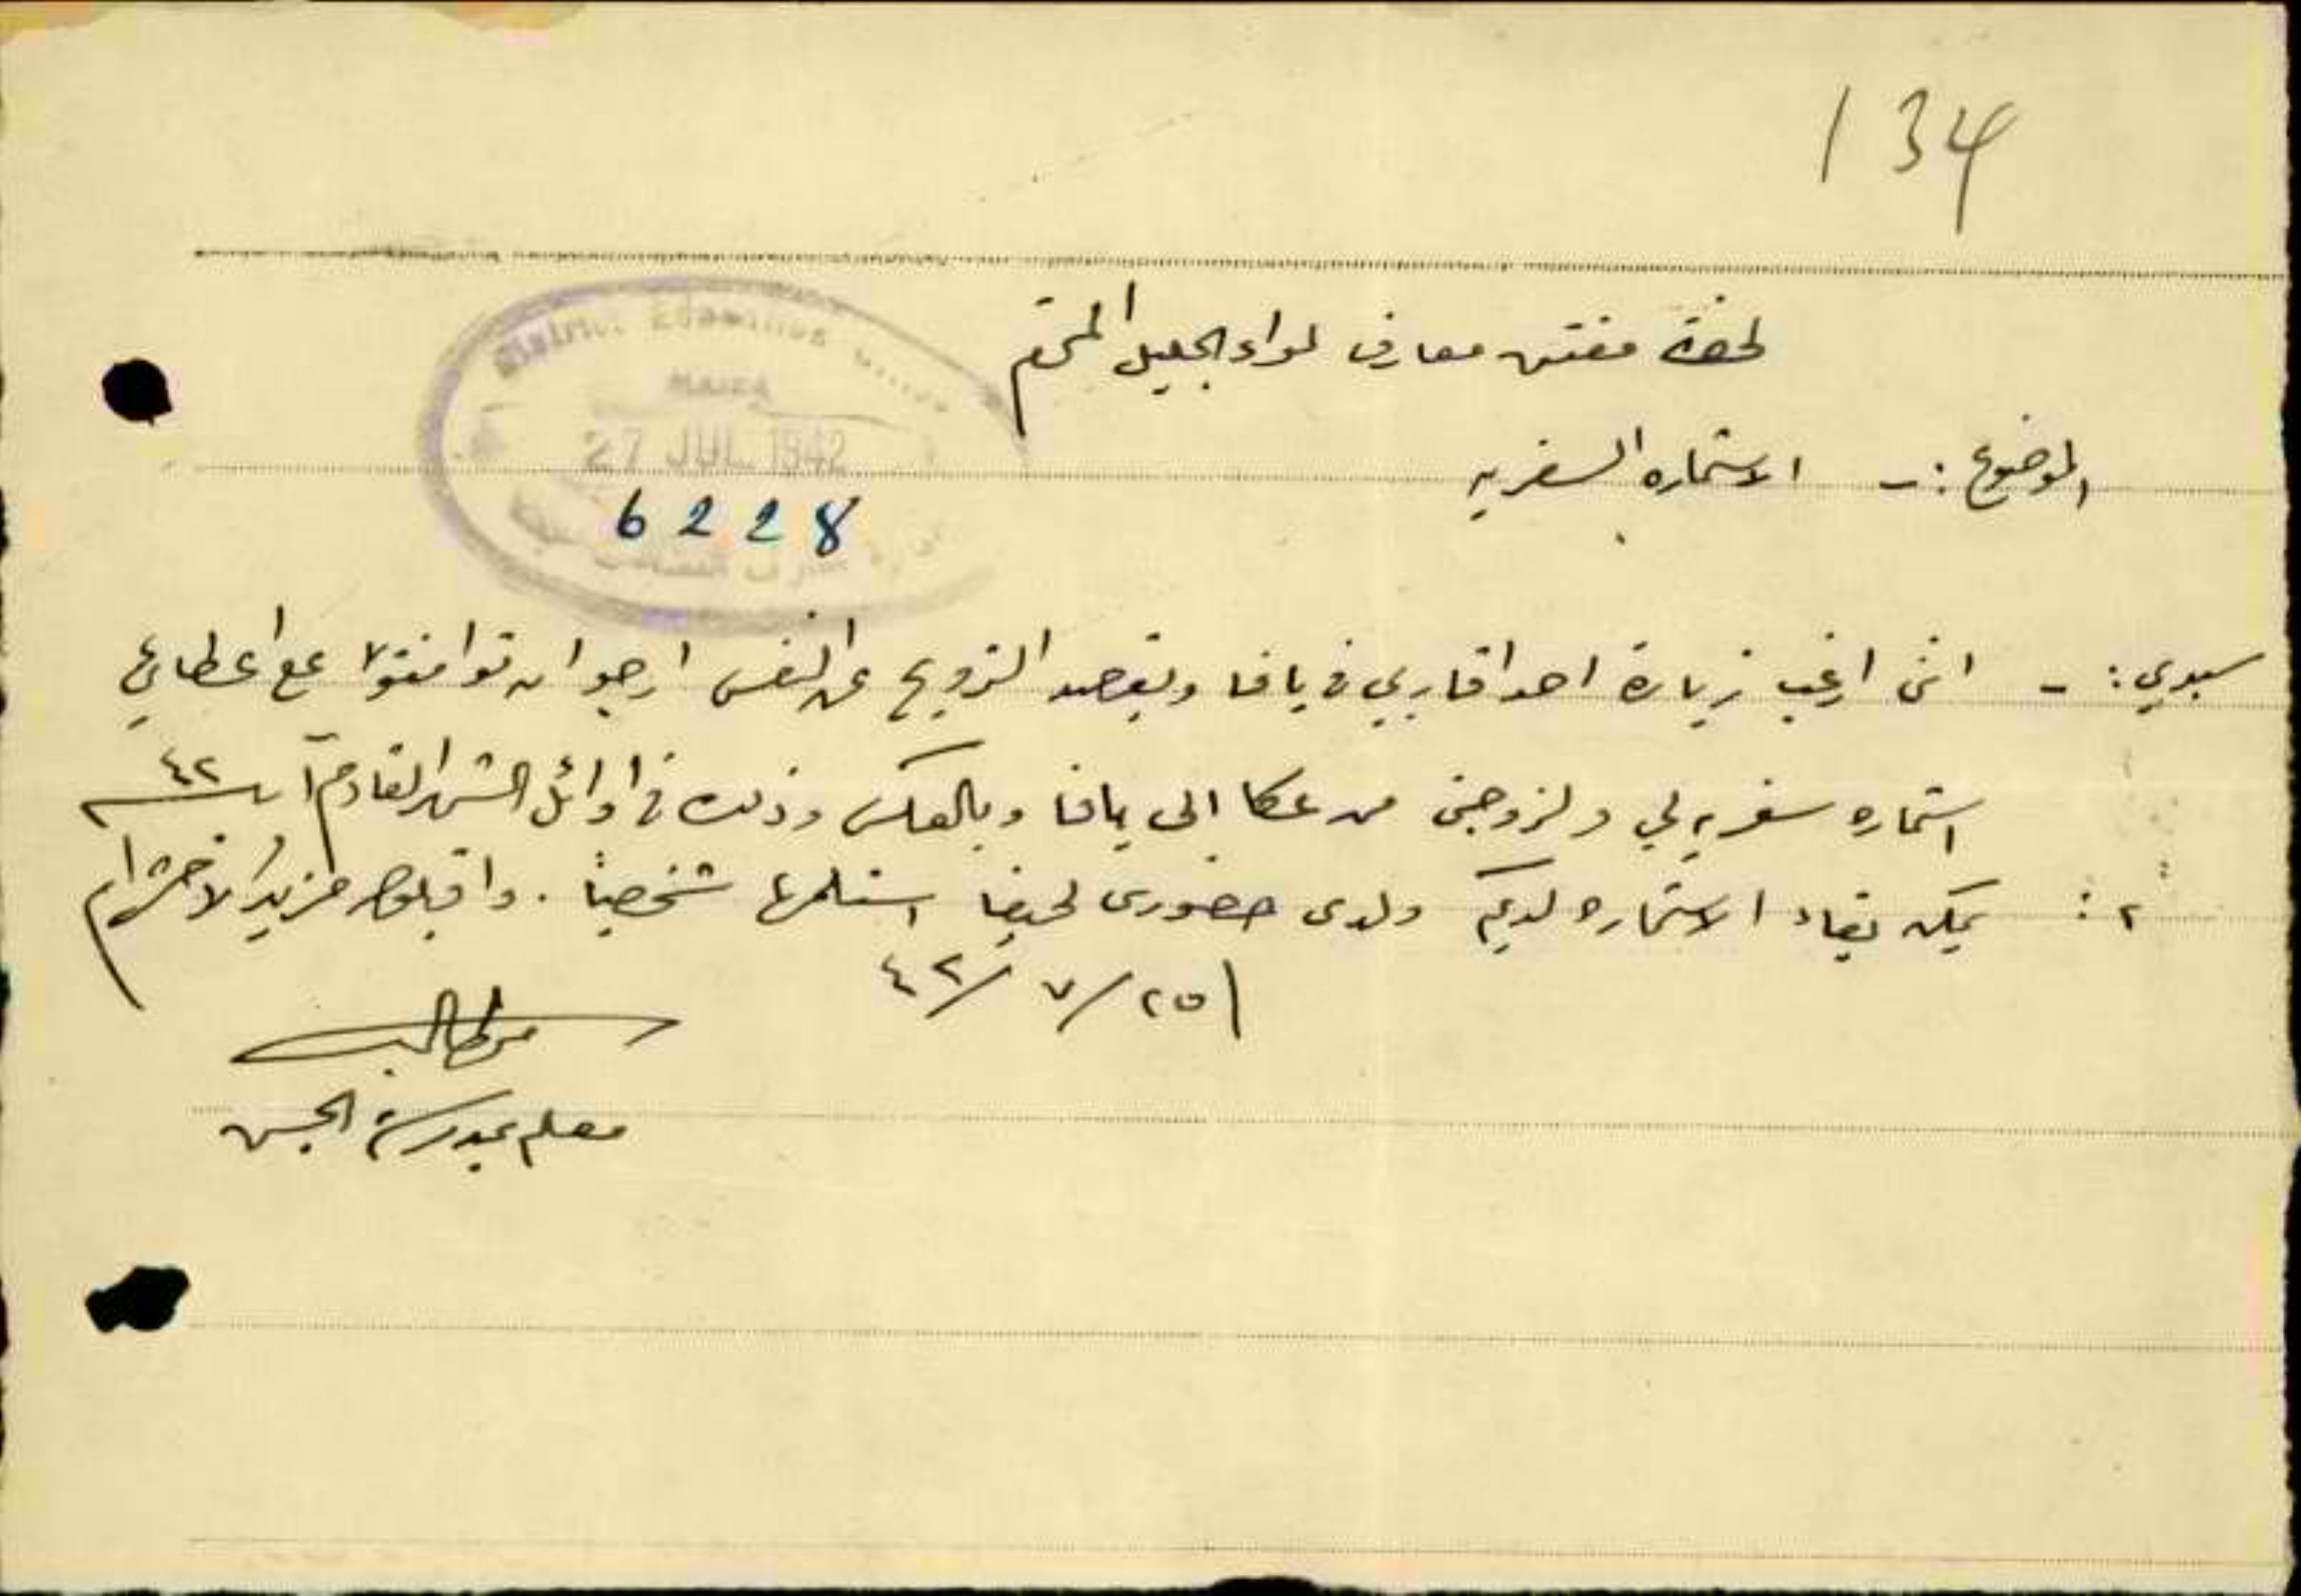 134
لحضرة مفتش معارف لواء الجليل المحترم
District Education
HAIFA
27 JUL 1942
6228
الموضوع :- الاستماره السفريه
سيدي :- انني ارغب زيارة احد اقاربي في يافا وبقصد الترويح عن النفس ارجو ان توافقوا على اعطائي
استماره سفريه لي ولزوجتي من عكا الى يافا وبالعكس وذلك في اوائل الشهر القادم آب ٤٢
٢ : يمكن بقاء الاستماره لديكم ولدى حضوري لحيفا استلمها شخصياً . واقبلوا مزيد الاحترام
٢٥/٧/٤٢
معلم بمدرسة